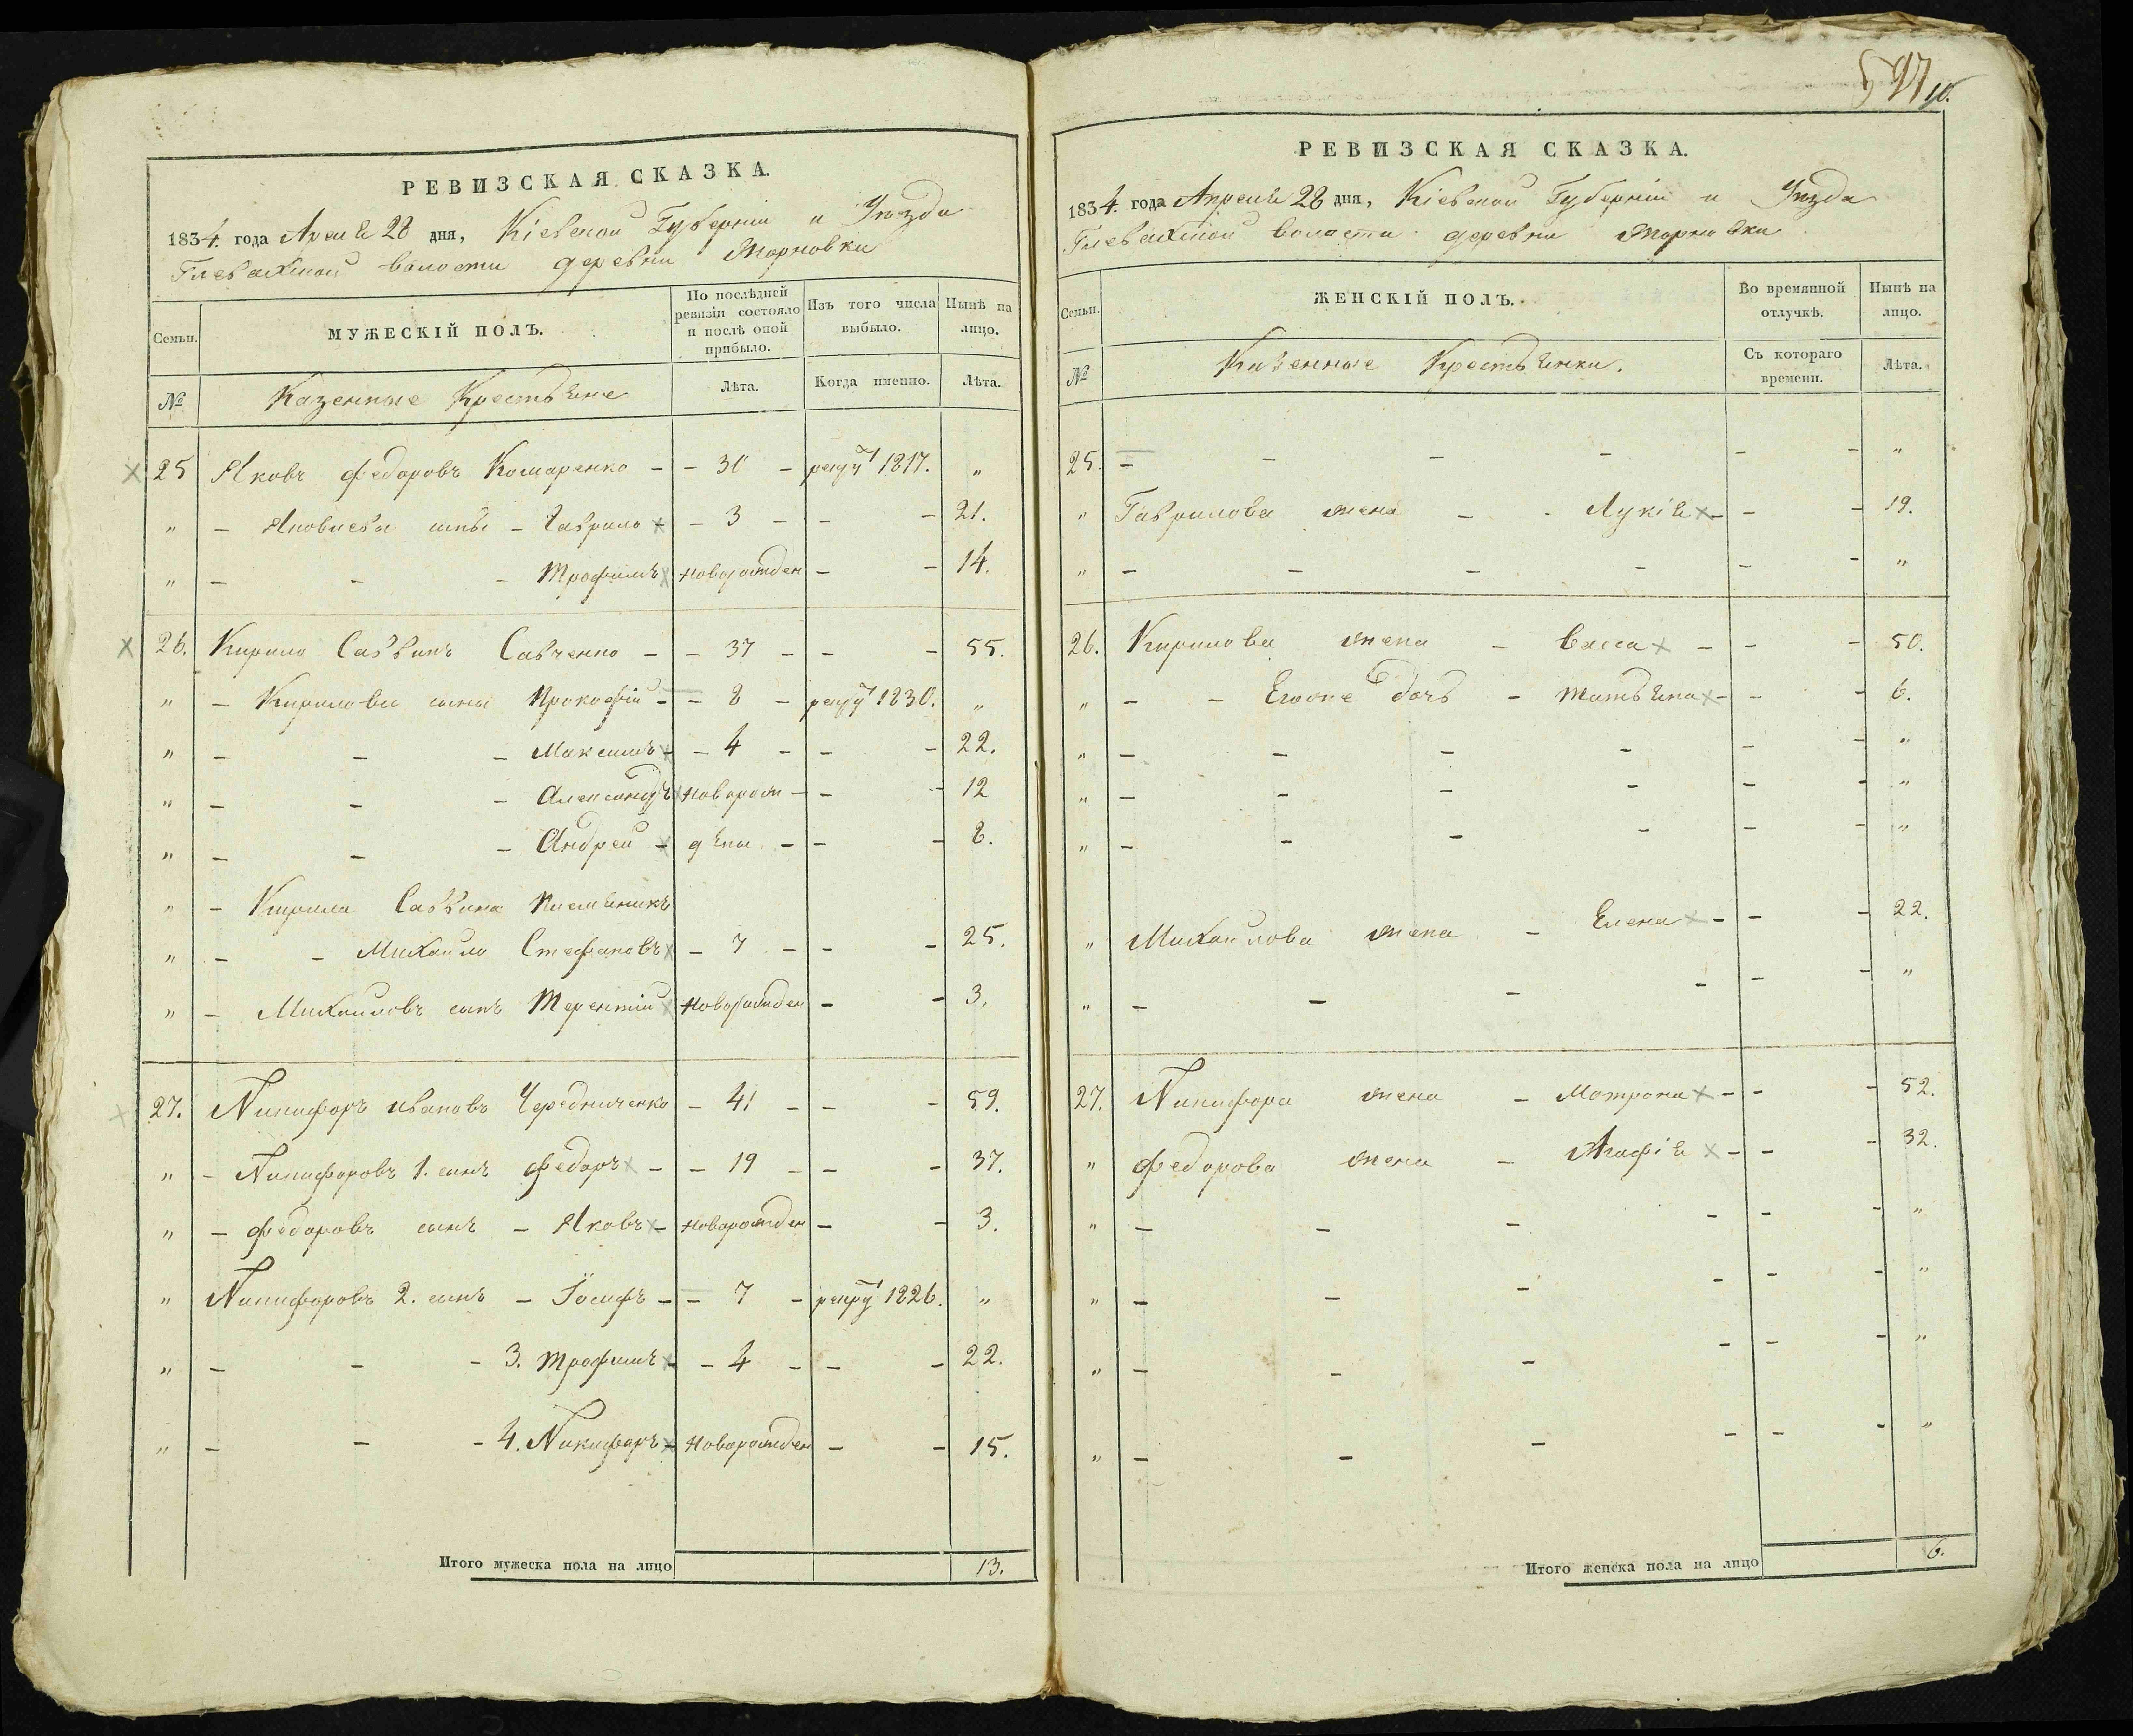 РЕВИЗСКАЯ СКАЗКА.
1834. года Апреля 28 дня, Кіевской Губерніи и Уезда
Глевахской волости деревни Жорновки
Семьи.
МУЖЕСКІЙ ПОЛЪ.
По послѣдней ревизіи состояло и послѣ оной прибыло.
Изъ того числа выбыло.
Нынѣ на лицо.
№
Казенные Крестьяне
Лѣта.
Когда именно.
Лѣта.
25 Яковъ Федоровъ Комаренко - - 30 - 1817. "
" - Яковлевы сыны - Гаврило - 3 - - - 21.
" - - - Трофимъ новорожден - - 14.
26. Кирило Саввинъ Савченко - - 37 - - - 55.
" - Кириловы сыны Прокофій - - 8 - 1830. "
" - - - Максимъ - - 4 - - - 22.
" - - - Александръ новорож - - - 12
" - - - Андрей - дены - - - 8.
" - Кирила Саввина племяникъ
" - - Михайло Стефановъ - 7 - - - 25.
" - Михайловъ сынъ Терентій новорожден - - 3.
27. Никифоръ Ивановъ Чередниченко - 41 - - - 59.
" - Никифоровъ 1. сынъ Федоръ - - 19 - - - 37.
" - Федоровъ сынъ - Яковъ - новорожден - - 3.
" Никифоровъ 2. сынъ - Іосифъ - - 7 - 1826. "
" - - - 3. Трофимъ - - 4 - - - 22.
" - - - 4. Никифоръ - новорожден - - 15.
Итого мужеска пола на лицо 13.
10.
РЕВИЗСКАЯ СКАЗКА.
1834. года Апреля 28 дня, Кіевской Губерніи и Уезда
Глевахской волости деревни Жорновки
Семьи.
ЖЕНСКІЙ ПОЛЪ.
Во времянной отлучкѣ.
Нынѣ на лицо.
№
Казенные Крестьянки.
Съ котораго времени.
Лѣта.
25. - - - - - - "
" Гаврилова жена - - Лукія - - - 19.
" - - - - - - "
26. Кирилова жена - Васса - - - 50.
" - - Егоже дочь - Татьяна - - - 6.
" - - - - - - "
" - - - - - - "
" - - - - - - "
" Михайлова жена - Елена - - - 22.
" - - - - - - "
27. Никифора жена - Мотрона - - - 52.
" Федорова жена - Агафія - - - 32.
" - - - - - - "
" - - - - - - "
" - - - - - - "
" - - - - - - "
Итого женска пола на лицо 6.